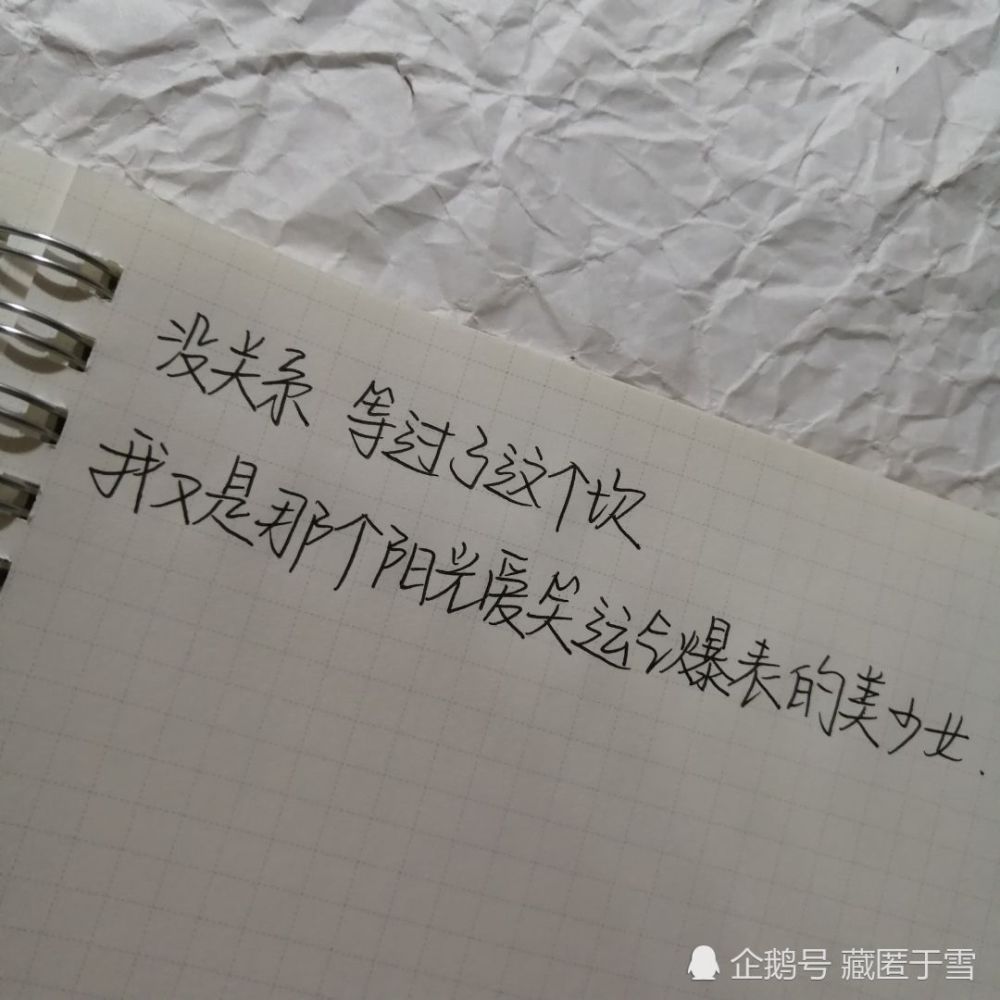 没关系 等过了这个坎
我又是那个阳光爱笑运气爆表的美少女.
企鹅号 藏匿于雪